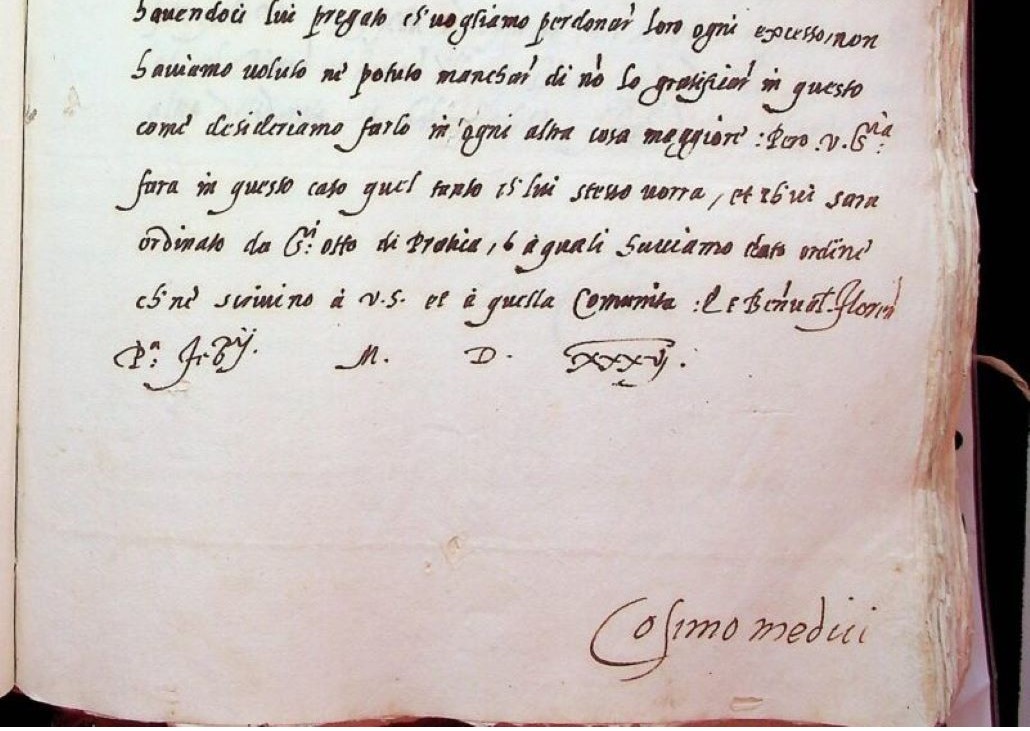 havendoci lui pregato ch vogliamo perdonar loro ogni excesso, non
haviamo voluto ne potuto manchar di nō lo gratificar in questo
come desideriamo farlo in ogni altra cosa maggiore : Pero .v. S.ria
fara in questo caso quel tanto ch lui stesso vorra, et ch vi sara
ordinato da S.ri otto di Pratica, à quali haviamo dato ordine
ch ne scrivino à v.S. et à quella Comunita : Et Benevat. Floren
P.a Febrij. M. D. XXXVJ.
Cosimo medici